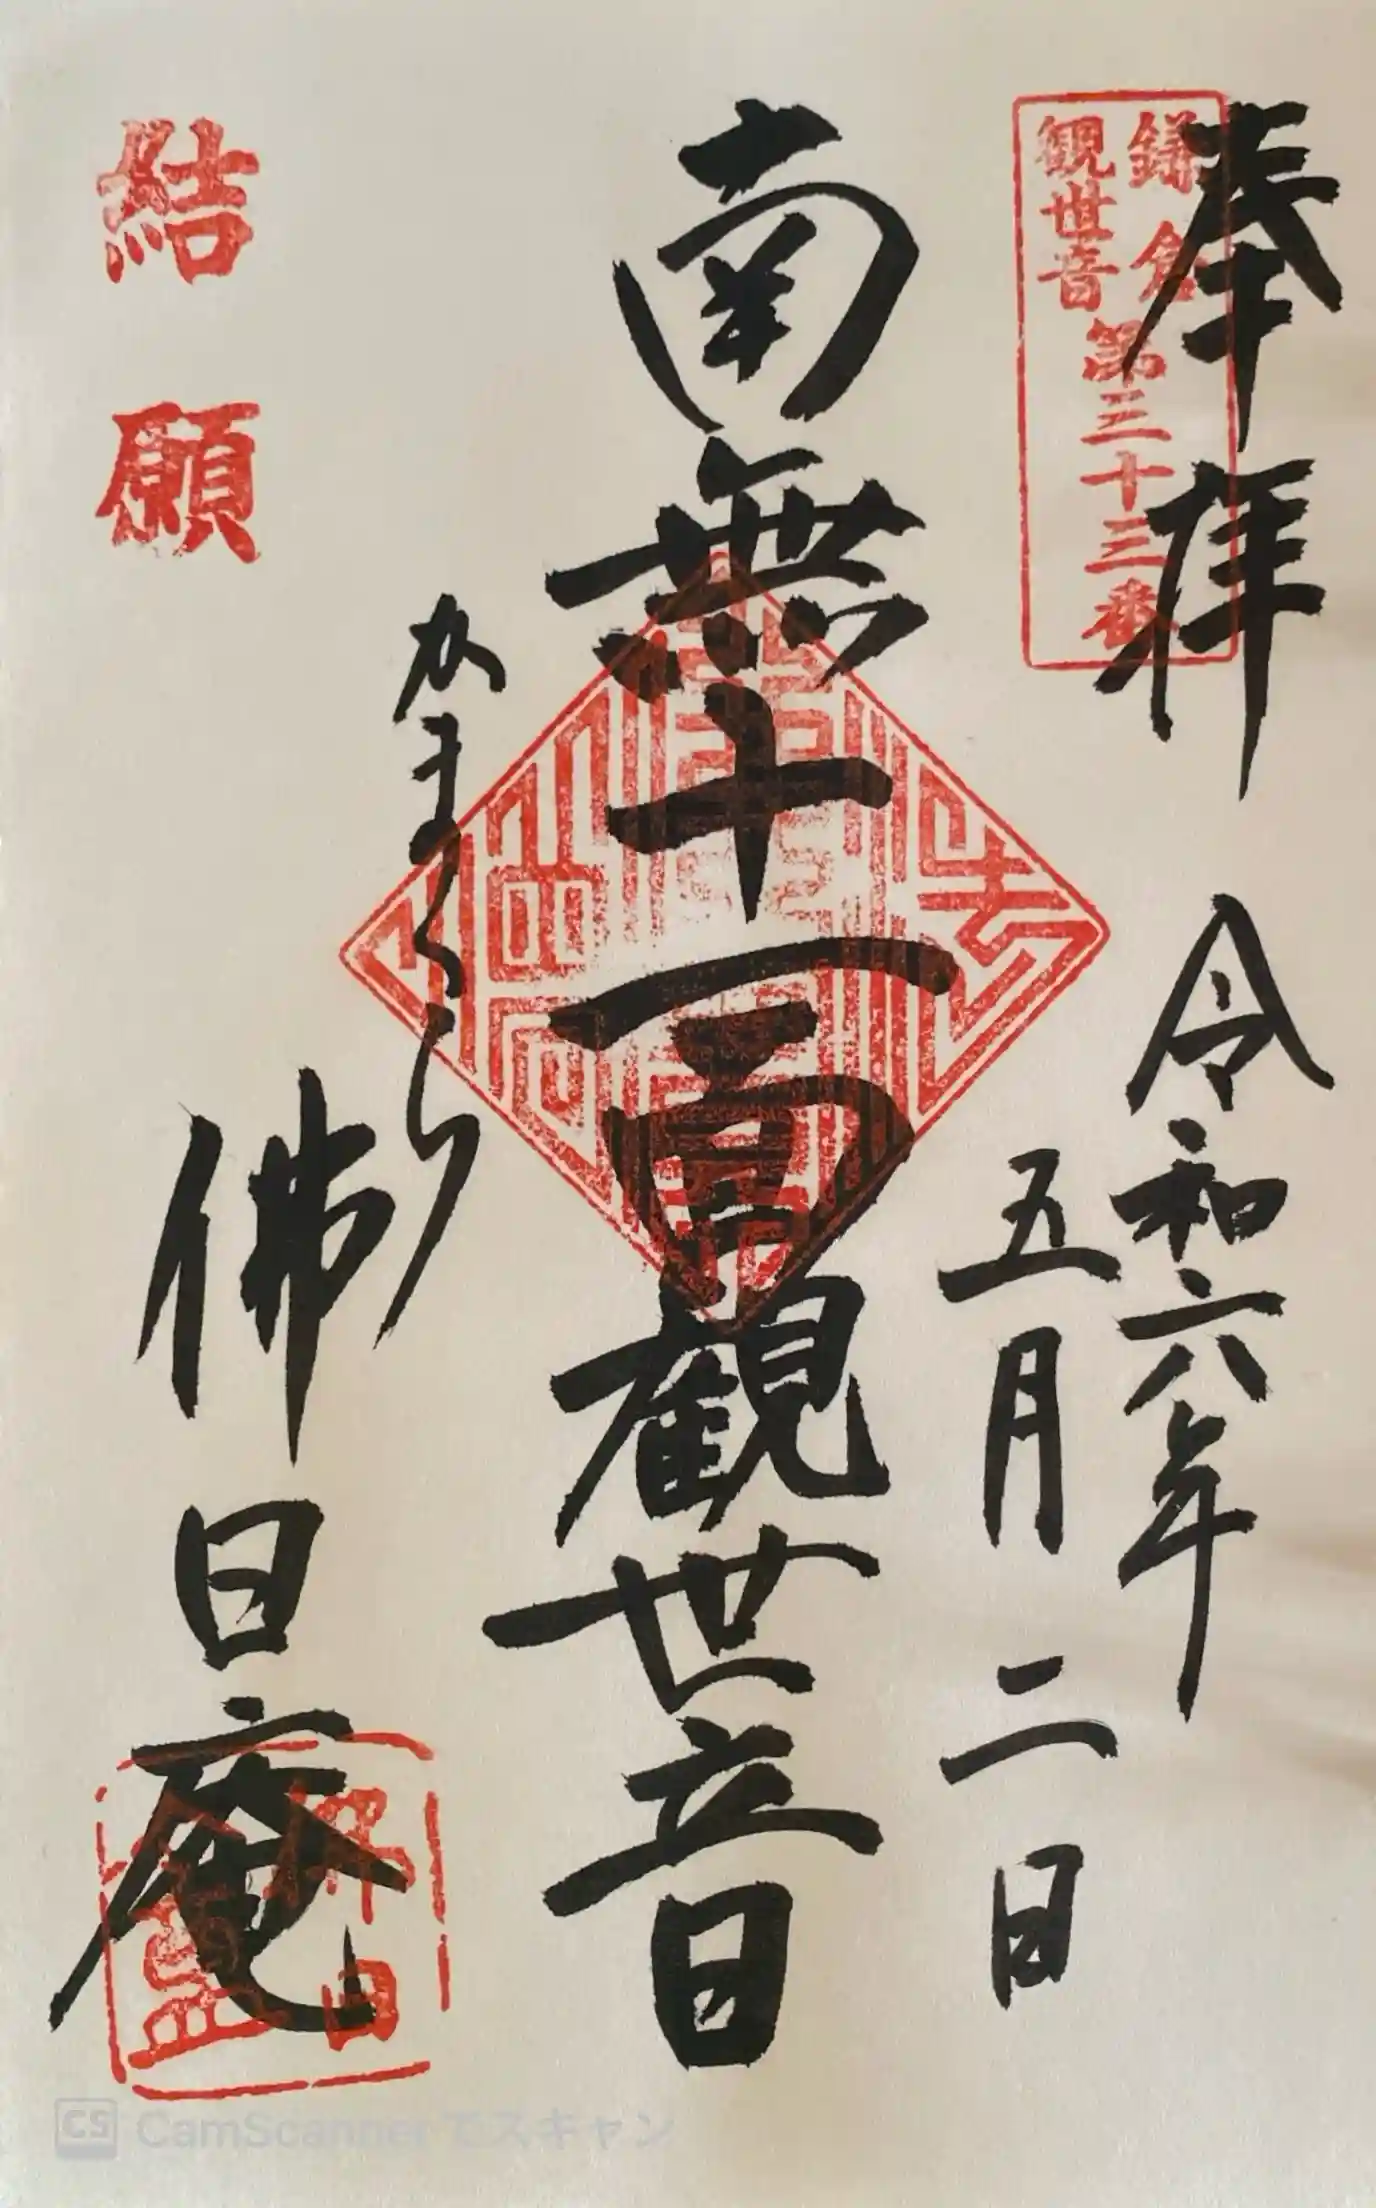 奉拝
鎌倉
観世音
第三十三番
令和六年
五月二日
南無十一面観世音
かまくら
佛日庵
結願
CS CamScannerでスキャン